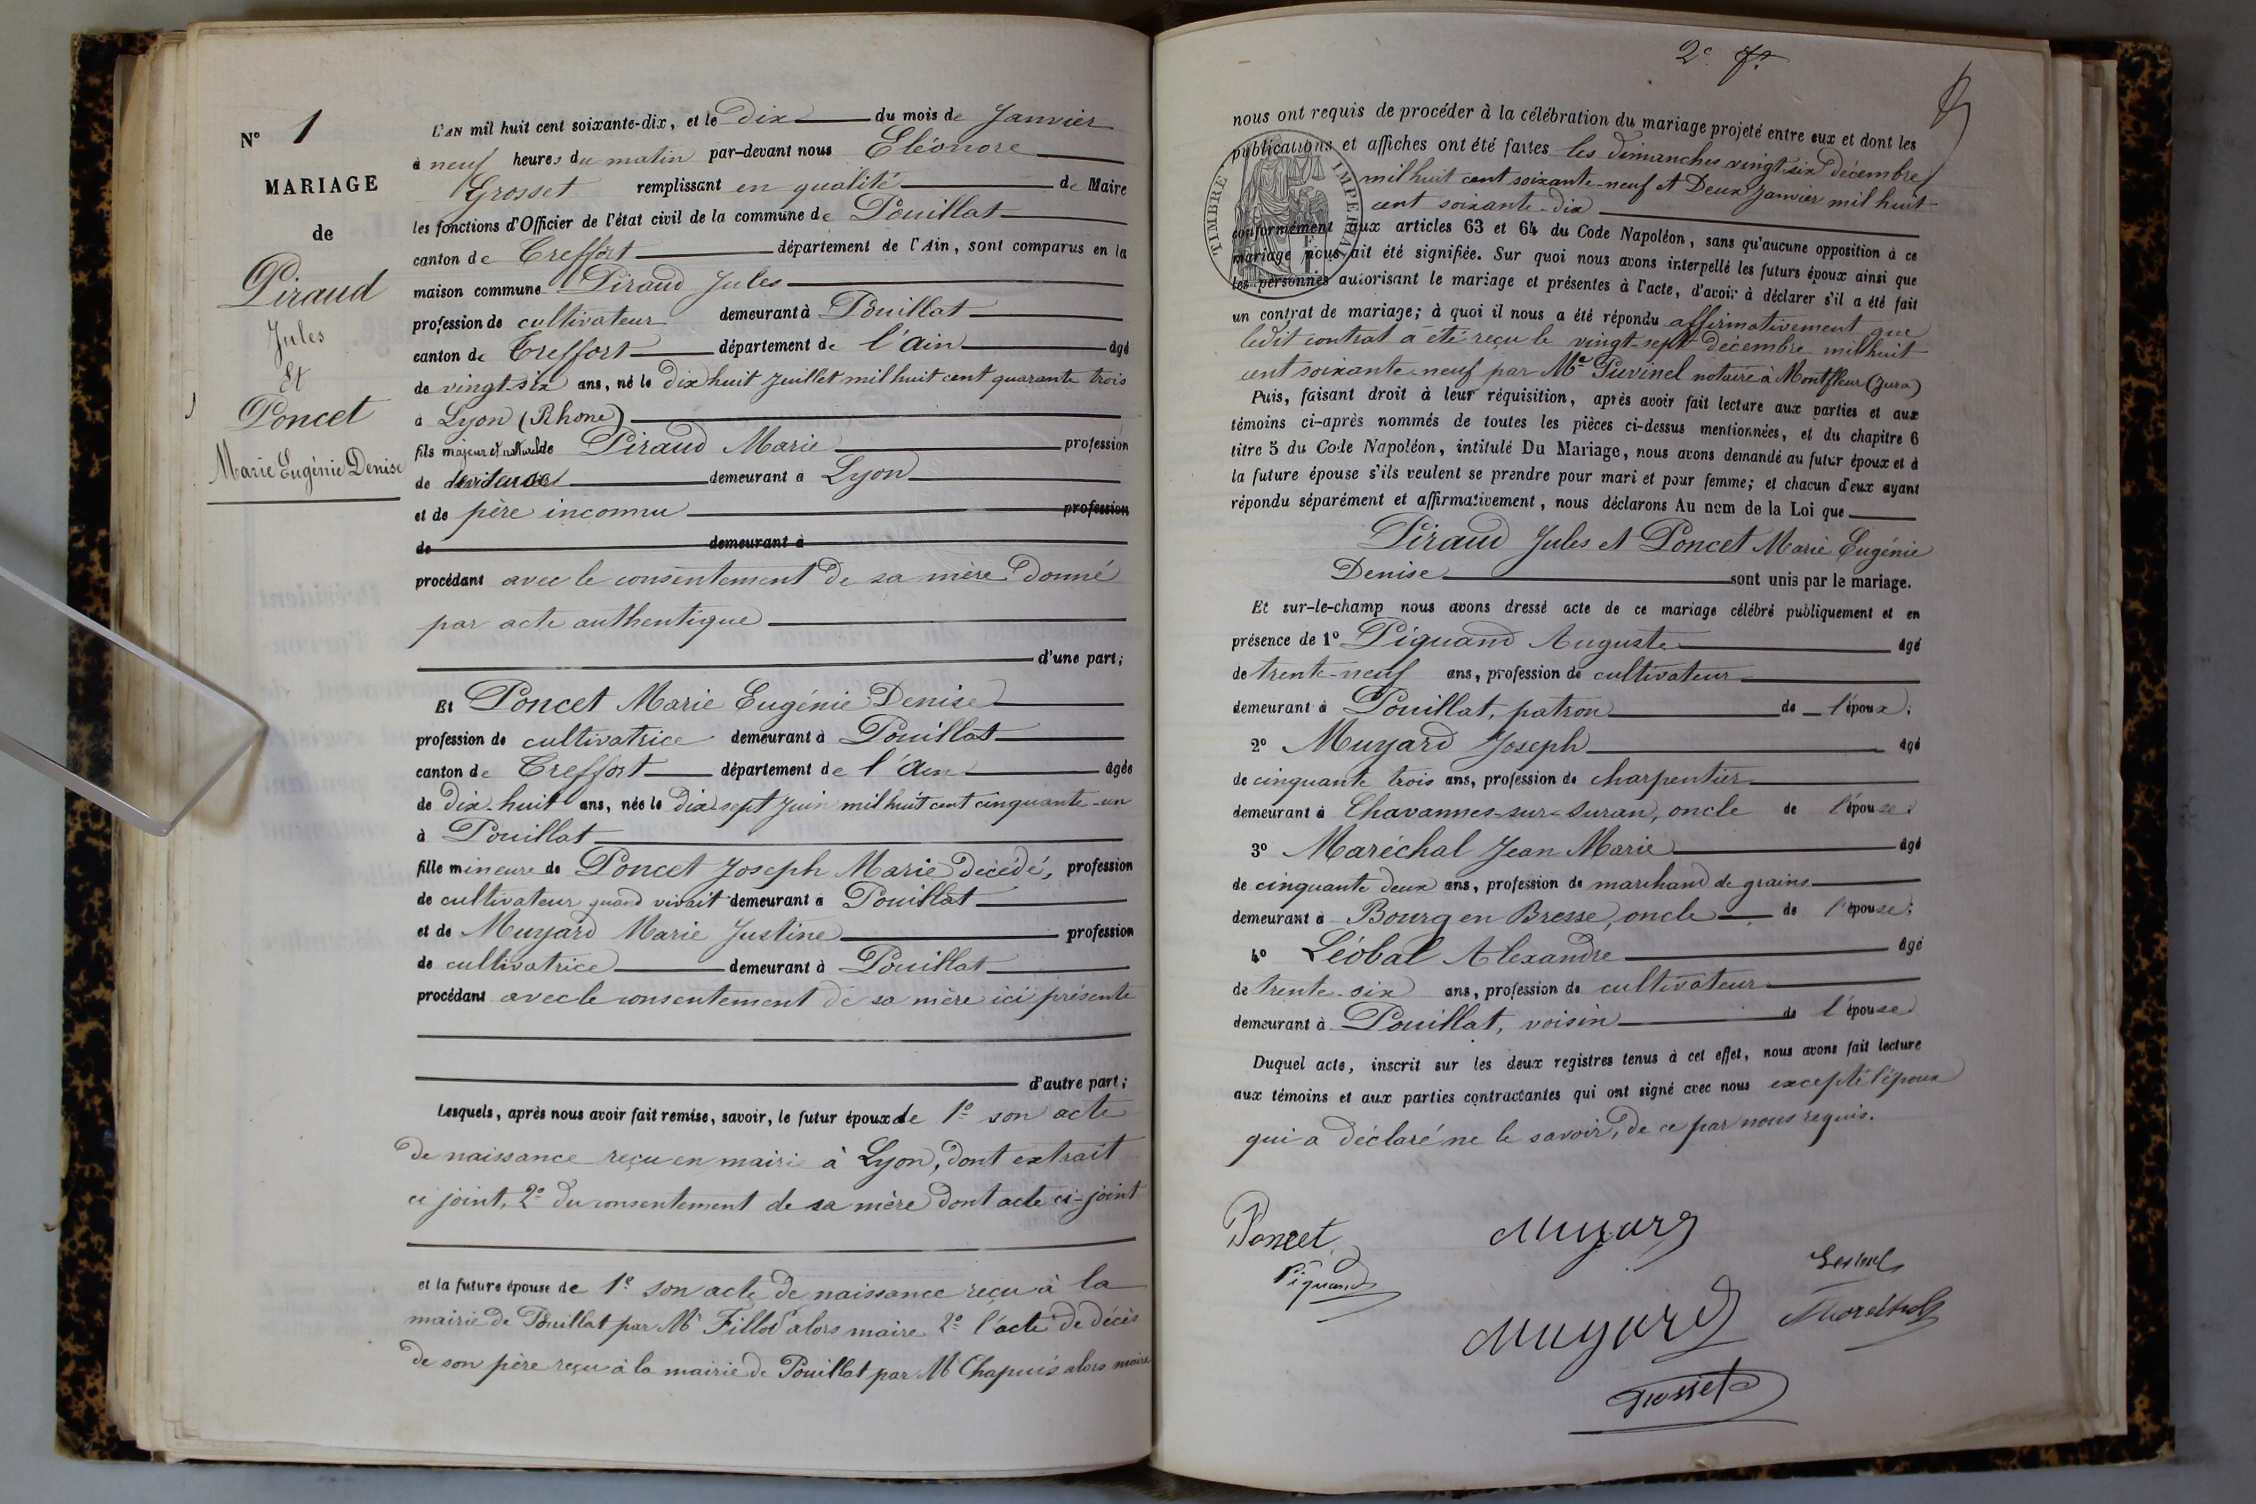 N° 1
MARIAGE
de
Piraud
Jules
Et
Poncet
Marie Eugénie Denise
L'AN mil huit cent soixante-dix, et le Dix du mois de Janvier
à neuf heures du matin par-devant nous Eléonore
Grosset remplissant en qualité de Maire
les fonctions d'Officier de l'état civil de la commune de Pouillat
canton de Treffort département de l'Ain, sont comparus en la
maison commune Piraud Jules
profession de cultivateur demeurant à Pouillat
canton de Treffort département de l'Ain âgé
de vingt-six ans, né le Dix huit Juillet mil huit cent quarante trois
à Lyon (Rhone)
fils majeur et naturel de Piraud Marie profession
de demeurant à Lyon
et de père inconnu profession
de demeurant à
procédant avec le consentement de sa mère donné
par acte authentique
d'une part;
Et Poncet Marie Eugénie Denise
profession de cultivatrice demeurant à Pouillat
canton de Treffort département de l'Ain âgée
de Dix-huit ans, née le Dix sept Juin mil huit cent cinquante-un
à Pouillat
fille mineure de Poncet Joseph Marie décédé, profession
de cultivateur quand vivait demeurant à Pouillat
et de Muyard Marie Justine profession
de cultivatrice demeurant à Pouillat
procédant avec le consentement de sa mère ici présente
d'autre part;
Lesquels, après nous avoir fait remise, savoir, le futur époux de 1° son acte
de naissance reçu en mairie à Lyon, dont extrait
ci joint, 2° du consentement de sa mère dont acte ci-joint
et la future épouse de 1° son acte de naissance reçu à la
mairie de Pouillat par Mr Fillod alors maire 2° l'acte de décès
de son père reçu à la mairie de Pouillat par Mr Chapuis alors maire
2e f.
nous ont requis de procéder à la célébration du mariage projeté entre eux et dont les
publications et affiches ont été faites les dimanches vingt-six décembre
mil huit cent soixante-neuf et Deux Janvier mil huit
cent soixante-dix
TIMBRE IMPERIAL
conformément aux articles 63 et 64 du Code Napoléon, sans qu'aucune opposition à ce
mariage nous ait été signifiée. Sur quoi nous avons interpellé les futurs époux ainsi que
les personnes autorisant le mariage et présentes à l'acte, d'avoir à déclarer s'il a été fait
un contrat de mariage; à quoi il nous a été répondu affirmativement que
ledit contrat a été reçu le vingt-sept décembre mil huit
cent soixante-neuf par Me Puvinel notaire à Montfleur (Jura)
Puis, faisant droit à leur réquisition, après avoir fait lecture aux parties et aux
témoins ci-après nommés de toutes les pièces ci-dessus mentionnées, et du chapitre 6
titre 5 du Code Napoléon, intitulé Du Mariage, nous avons demandé au futur époux et à
la future épouse s'ils veulent se prendre pour mari et pour femme; et chacun d'eux ayant
répondu séparément et affirmativement, nous déclarons Au nom de la Loi que
Piraud Jules et Poncet Marie Eugénie
Denise sont unis par le mariage.
Et sur-le-champ nous avons dressé acte de ce mariage célébré publiquement et en
présence de 1° Piquand Auguste âgé
de trente-neuf ans, profession de cultivateur
demeurant à Pouillat, patron de l'époux;
2° Muyard Joseph âgé
de cinquante trois ans, profession de charpentier
demeurant à Chavannes-sur-Suran, oncle de l'épouse;
3° Maréchal Jean Marie âgé
de cinquante deux ans, profession de marchand de grains
demeurant à Bourg en Bresse, oncle de l'épouse;
4° Léobal Alexandre âgé
de trente-six ans, profession de cultivateur
demeurant à Pouillat, voisin de l'épouse
Duquel acte, inscrit sur les deux registres tenus à cet effet, nous avons fait lecture
aux témoins et aux parties contractantes qui ont signé avec nous excepté l'époux
qui a déclaré ne le savoir, de ce par nous requis.
Poncet Muyard
Piquand
Muyard Maréchal
Grosset